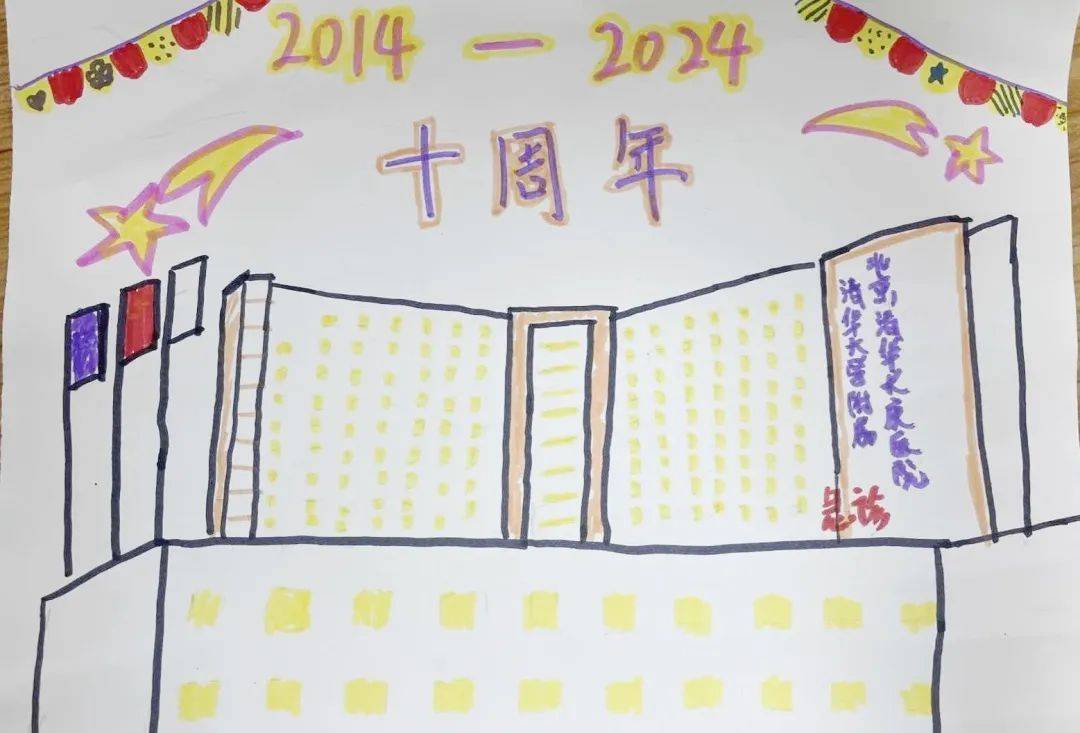 2014 — 2024
十周年
清华大学附属
北京清华长庚医院
急诊